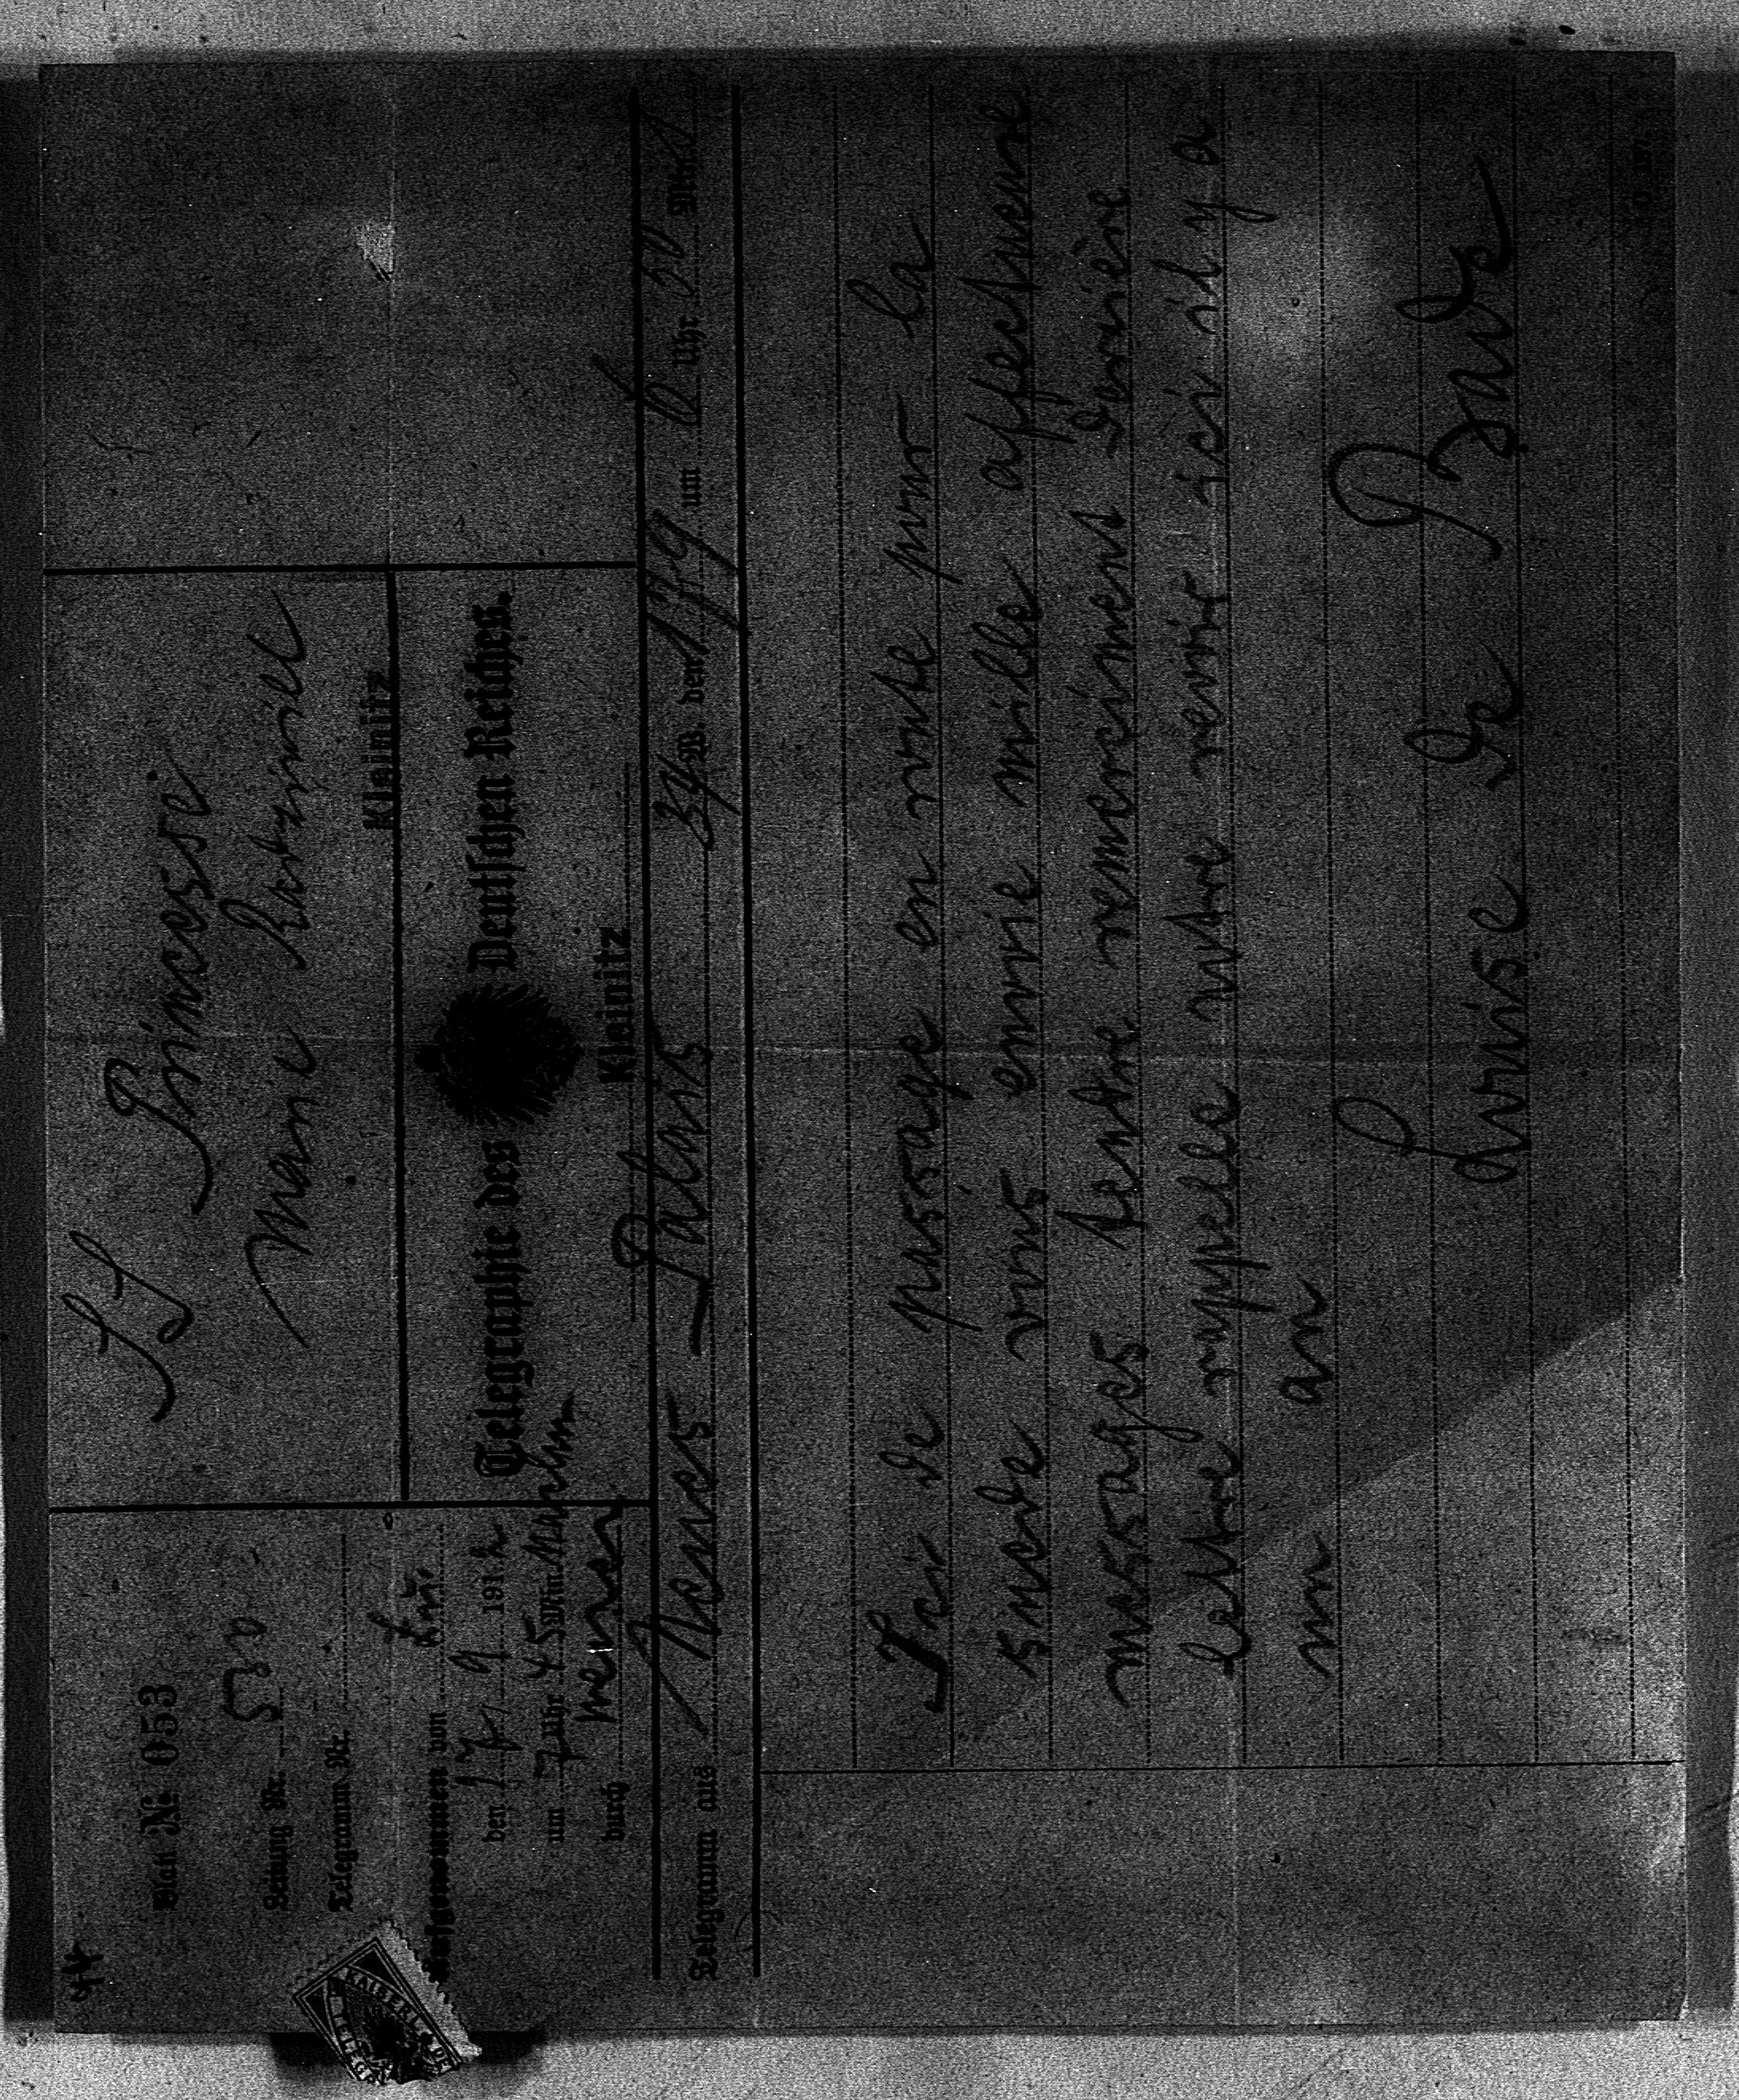 44
Blatt № 053
Leitung Nr. 530
Telegramm Nr.
Aufgenommen von
den 17/9 1912
um 7 Uhr 45 Min
durch
SS
Princesse
Marie Radziwill
Kleinitz
Telegraphie des Deutschen Reiches.
Kleinitz
Telegramm aus Neues Palais 34 W. den 17/9 um 10 Uhr 50 Min
Ici de passage en route pour la
suede vous envoie mille affectueuse
messages tendre remerciment derniere
lettre rappelle notre revoir ici il y a
un an
Louise de Bade